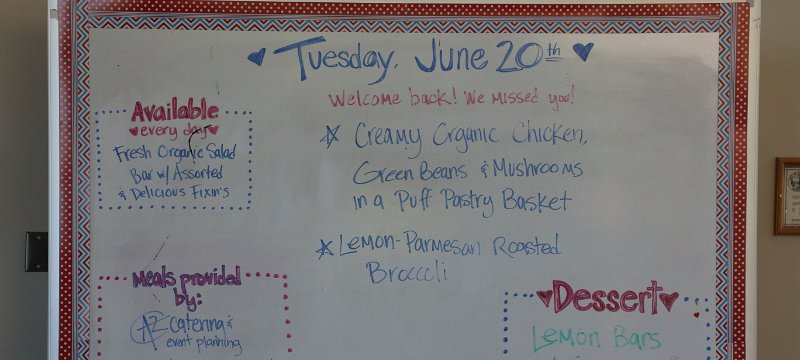 Tuesday, June 20th
Welcome back! We missed you!
Creamy Organic Chicken,
Green Beans & Mushrooms
in a Puff Pastry Basket
Lemon-Parmesan Roasted
Broccoli
Available
every day
Fresh Organic Salad
Bar w/ Assorted
& Delicious Fixin's
Meals provided
by:
AZ Catering &
event planning
Dessert
Lemon Bars